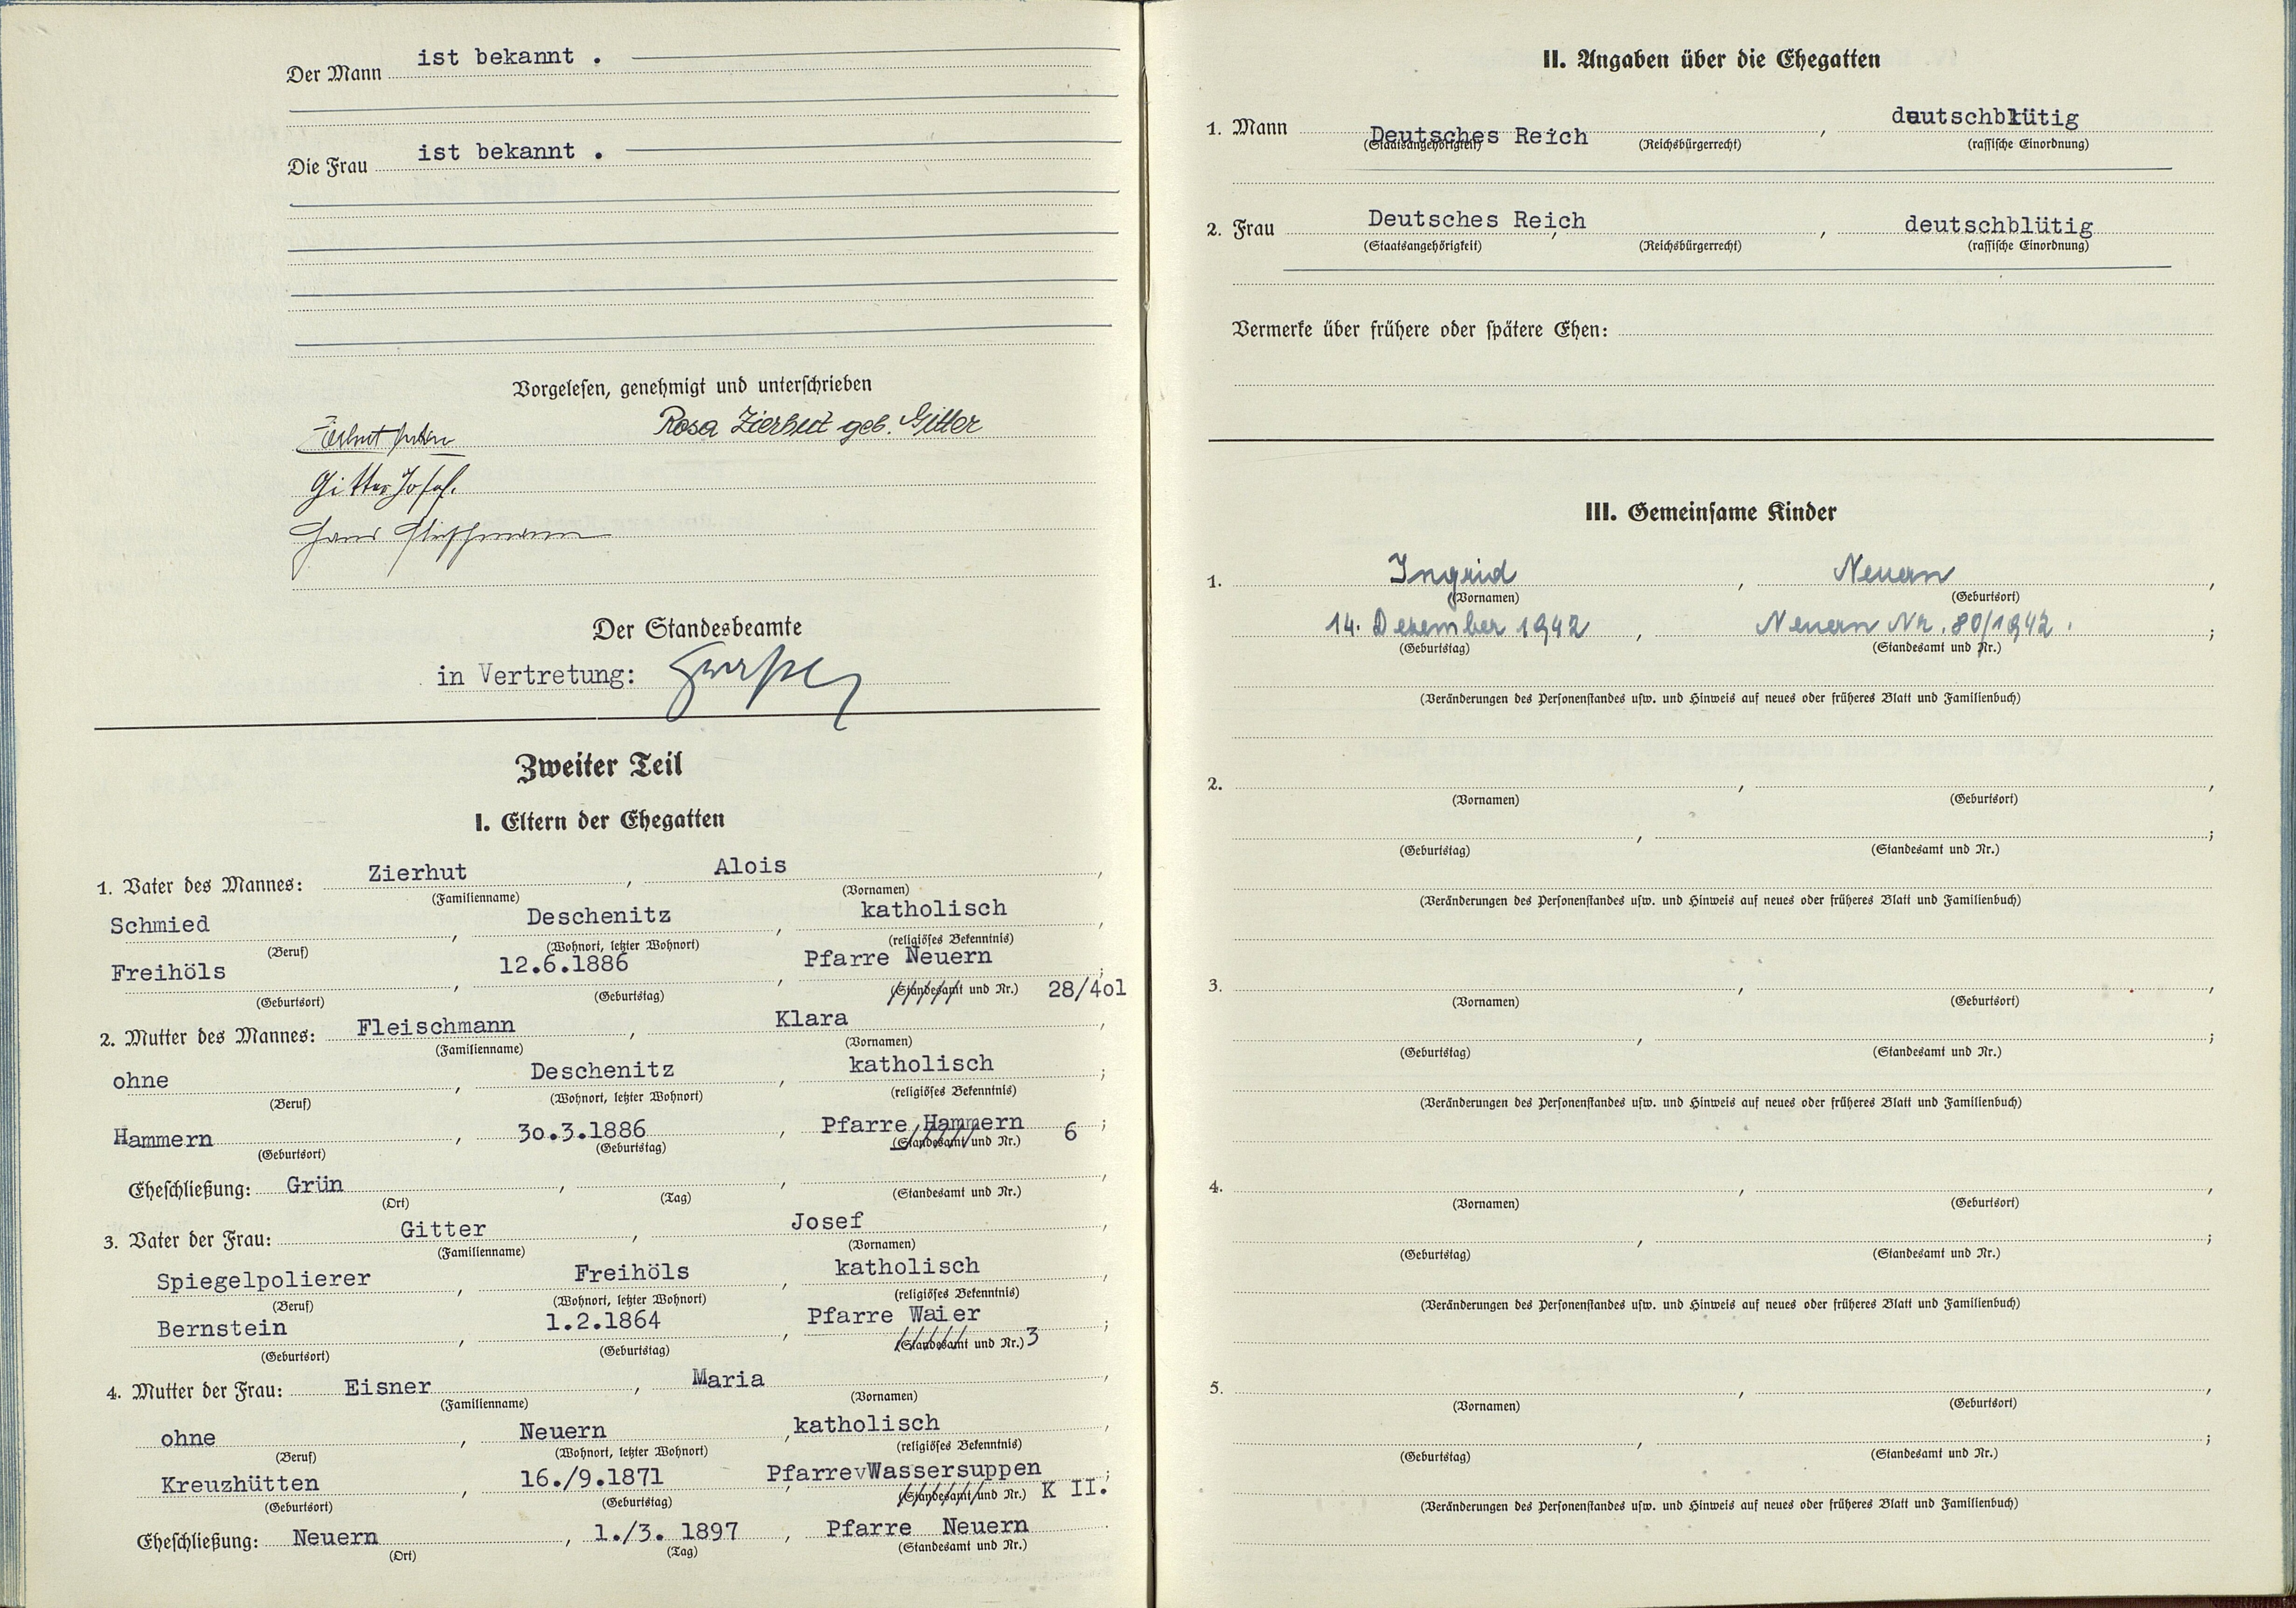 Der Mann ist bekannt .
Die Frau ist bekannt .
Vorgelesen, genehmigt und unterschrieben
Zierhut
Rosa Zierhut geb. Gitter
Gitter Josef.
Hans Fleischmann
Der Standesbeamte
in Vertretung:
Zweiter Teil
I. Eltern der Ehegatten
1. Vater des Mannes: Zierhut , Alois ,
(Familienname) (Vornamen)
Schmied , Deschenitz , katholisch ,
(Beruf) (Wohnort, letzter Wohnort) (religiöses Bekenntnis)
Freihöls , 12.6.1886 , Pfarre Neuern ;
(Geburtsort) (Geburtstag) (Standesamt und Nr.) 28/4o1
2. Mutter des Mannes: Fleischmann , Klara ,
(Familienname) (Vornamen)
ohne , Deschenitz , katholisch ;
(Beruf) (Wohnort, letzter Wohnort) (religiöses Bekenntnis)
Hammern , 3o.3.1886 , Pfarre Hammern ;
(Geburtsort) (Geburtstag) (Standesamt und Nr.) 6
Eheschließung: Grün , , ,
(Ort) (Tag) (Standesamt und Nr.)
3. Vater der Frau: Gitter , Josef ,
(Familienname) (Vornamen)
Spiegelpolierer , Freihöls , katholisch ,
(Beruf) (Wohnort, letzter Wohnort) (religiöses Bekenntnis)
Bernstein , 1.2.1864 , Pfarre Waier ;
(Geburtsort) (Geburtstag) (Standesamt und Nr.) 3
4. Mutter der Frau: Eisner , Maria ,
(Familienname) (Vornamen)
ohne , Neuern , katholisch ,
(Beruf) (Wohnort, letzter Wohnort) (religiöses Bekenntnis)
Kreuzhütten , 16./9.1871 , PfarrevWassersuppen ;
(Geburtsort) (Geburtstag) (Standesamt und Nr.) K II.
Eheschließung: Neuern , 1./3. 1897 , Pfarre Neuern
(Ort) (Tag) (Standesamt und Nr.)
II. Angaben über die Ehegatten
1. Mann Deutsches Reich , deutschblütig
(Staatsangehörigkeit) (Reichsbürgerrecht) (rassische Einordnung)
2. Frau Deutsches Reich , deutschblütig
(Staatsangehörigkeit) (Reichsbürgerrecht) (rassische Einordnung)
Vermerke über frühere oder spätere Ehen:
III. Gemeinsame Kinder
1. Ingrid , Neuern ,
(Vornamen) (Geburtsort)
14. Dezember 1942 , Neuern Nr. 80/1942. ;
(Geburtstag) (Standesamt und Nr.)
(Veränderungen des Personenstandes usw. und Hinweis auf neues oder früheres Blatt und Familienbuch)
2. , ,
(Vornamen) (Geburtsort)
, ;
(Geburtstag) (Standesamt und Nr.)
(Veränderungen des Personenstandes usw. und Hinweis auf neues oder früheres Blatt und Familienbuch)
3. , ,
(Vornamen) (Geburtsort)
, ;
(Geburtstag) (Standesamt und Nr.)
(Veränderungen des Personenstandes usw. und Hinweis auf neues oder früheres Blatt und Familienbuch)
4. , ,
(Vornamen) (Geburtsort)
, ;
(Geburtstag) (Standesamt und Nr.)
(Veränderungen des Personenstandes usw. und Hinweis auf neues oder früheres Blatt und Familienbuch)
5. , ,
(Vornamen) (Geburtsort)
, ;
(Geburtstag) (Standesamt und Nr.)
(Veränderungen des Personenstandes usw. und Hinweis auf neues oder früheres Blatt und Familienbuch)